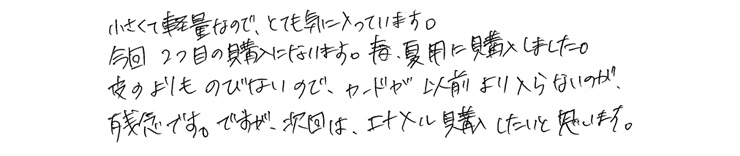 小さくて軽量なので、とても気に入っています。
今回2つ目の購入になります。春、夏用に購入しました。
皮のよりものびないので、カードが以前より入らないのが、
残念です。ですが、次回は、エナメル購入したいと思います。